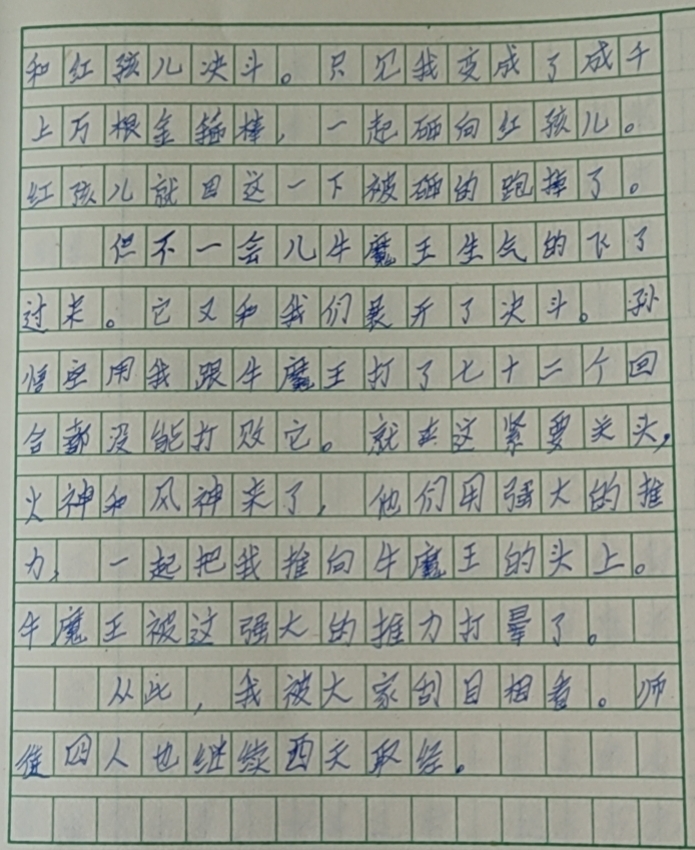 和红孩儿决斗。只见我变成了成千
上万根金箍棒，一起砸向红孩儿。
红孩儿就因这一下被砸的跑掉了。
但不一会儿牛魔王生气的飞了
过来。它又和我们展开了决斗。孙
悟空用我跟牛魔王打了七十二个回
合都没能打败它。就在这紧要关头，
火神和风神来了，他们用强大的推
力，一起把我推向牛魔王的头上。
牛魔王被这强大的推力打晕了。
从此，我被大家刮目相看。师
徒四人也继续西天取经。